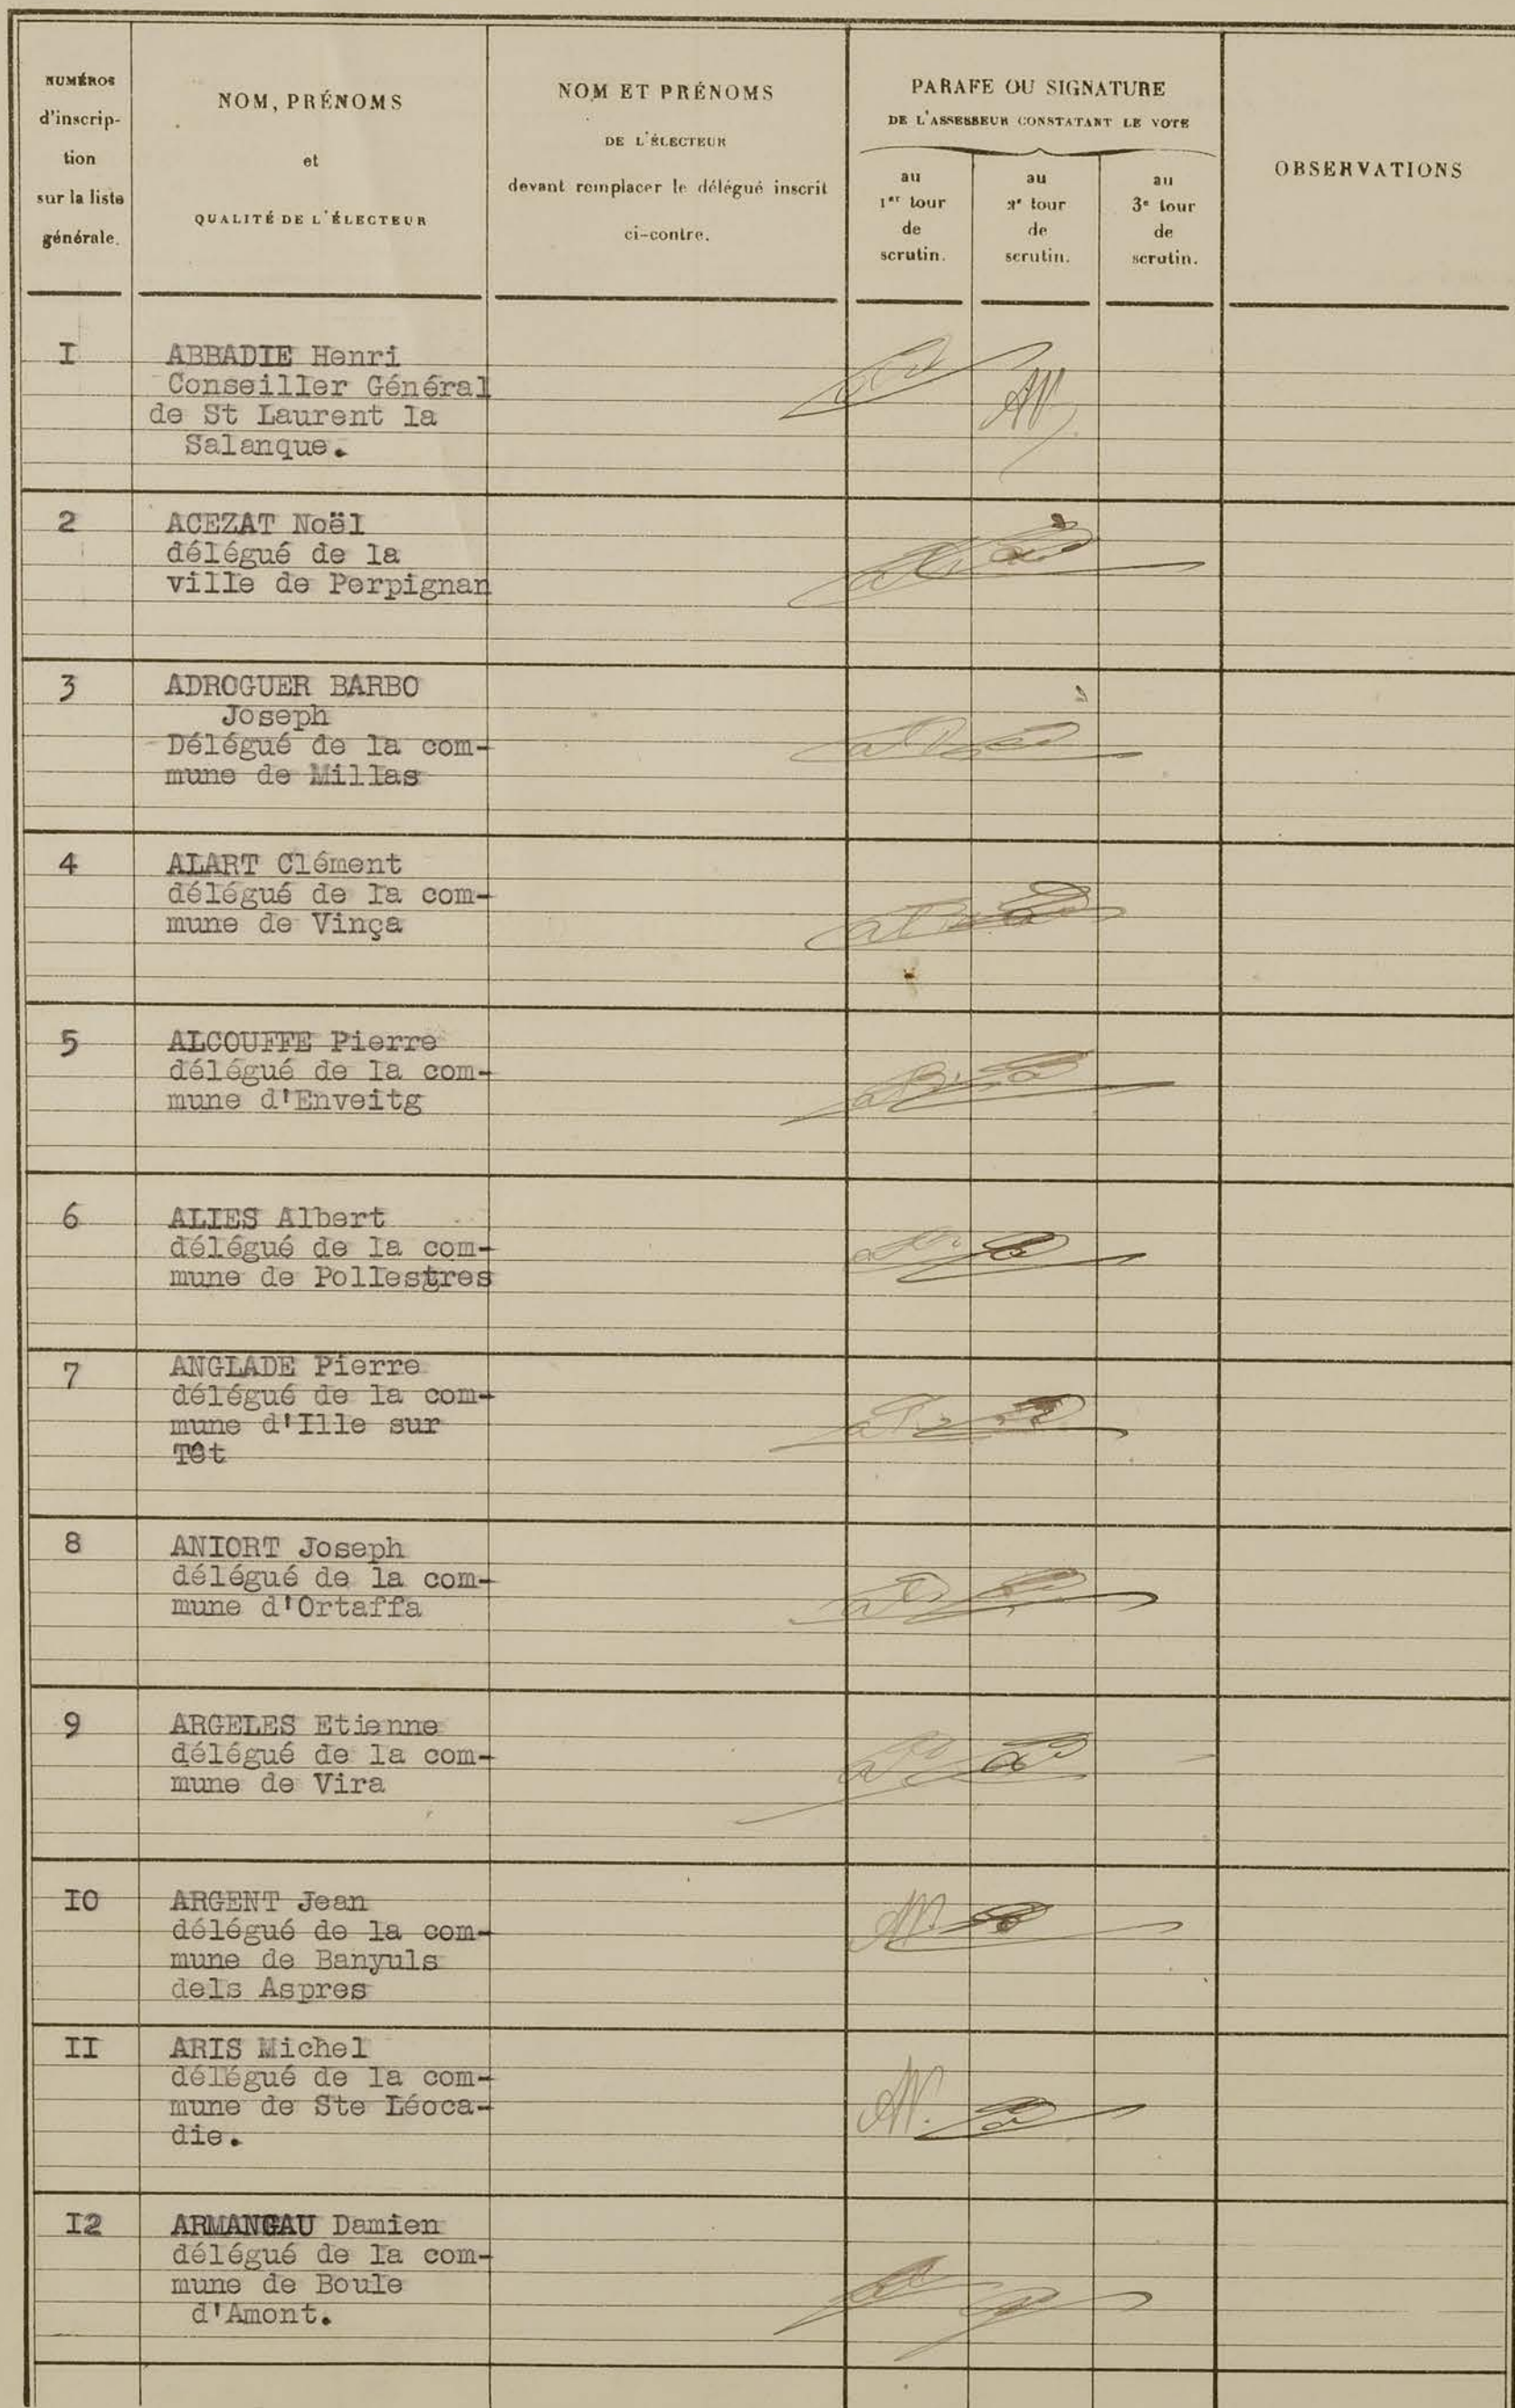 NUMÉROS
d'inscrip-
tion
sur la liste
générale.
NOM, PRÉNOMS
et
QUALITÉ DE L'ÉLECTEUR
NOM ET PRÉNOMS
DE L'ÉLECTEUR
devant remplacer le délégué inscrit
ci-contre.
PARAFE OU SIGNATURE
DE L'ASSESSEUR CONSTATANT LE VOTE
au
1er tour
de
scrutin.
au
2e tour
de
scrutin.
au
3e tour
de
scrutin.
OBSERVATIONS
I ABBADIE Henri
Conseiller Général
de St Laurent la
Salanque.
2 ACEZAT Noël
délégué de la
ville de Perpignan
3 ADROGUER BARBO
Joseph
Délégué de la com-
mune de Millas
4 ALART Clément
délégué de la com-
mune de Vinça
5 ALCOUFFE Pierre
délégué de la com-
mune d'Enveitg
6 ALIES Albert
délégué de la com-
mune de Pollestres
7 ANGLADE Pierre
délégué de la com-
mune d'Ille sur
Têt
8 ANIORT Joseph
délégué de la com-
mune d'Ortaffa
9 ARGELES Etienne
délégué de la com-
mune de Vira
IO ARGENT Jean
délégué de la com-
mune de Banyuls
dels Aspres
II ARIS Michel
délégué de la com-
mune de Ste Léoca-
die.
I2 ARMANGAU Damien
délégué de la com-
mune de Boule
d'Amont.